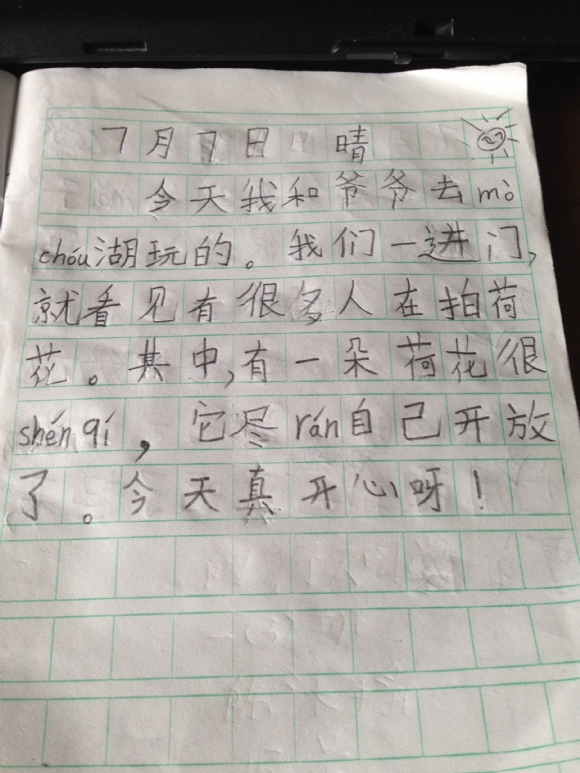 7月7日 晴
今天我和爷爷去mò
chóu湖玩的。我们一进门,
就看见有很多人在拍荷
花。其中,有一朵荷花很
shén qí,它尽rán自己开放
了。今天真开心呀!